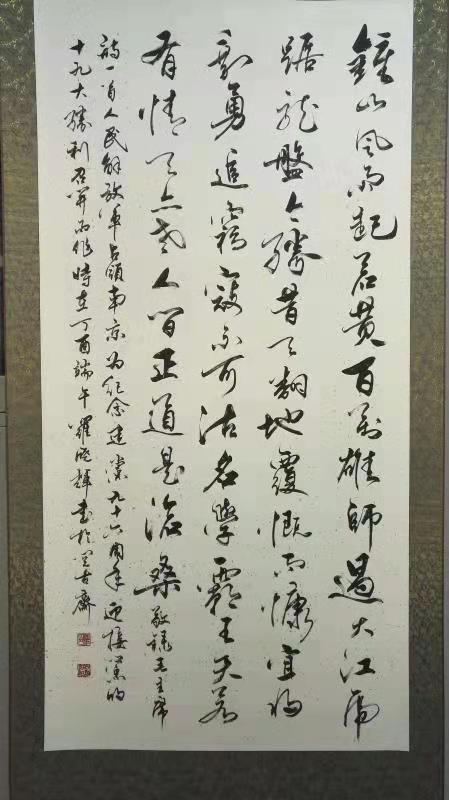 鐘山风雨起苍黄百万雄師過大江虎
踞龙盤今勝昔天翻地覆慨而慷宜将
剩勇追窮寇不可沽名學霸王天若
有情天亦老人间正道是滄桑 敬録毛主席
詩一首人民解放軍占領南京为纪念建党九十六周年迎接黨的
十九大勝利召开而作時在丁酉端午羅輝书於古齋